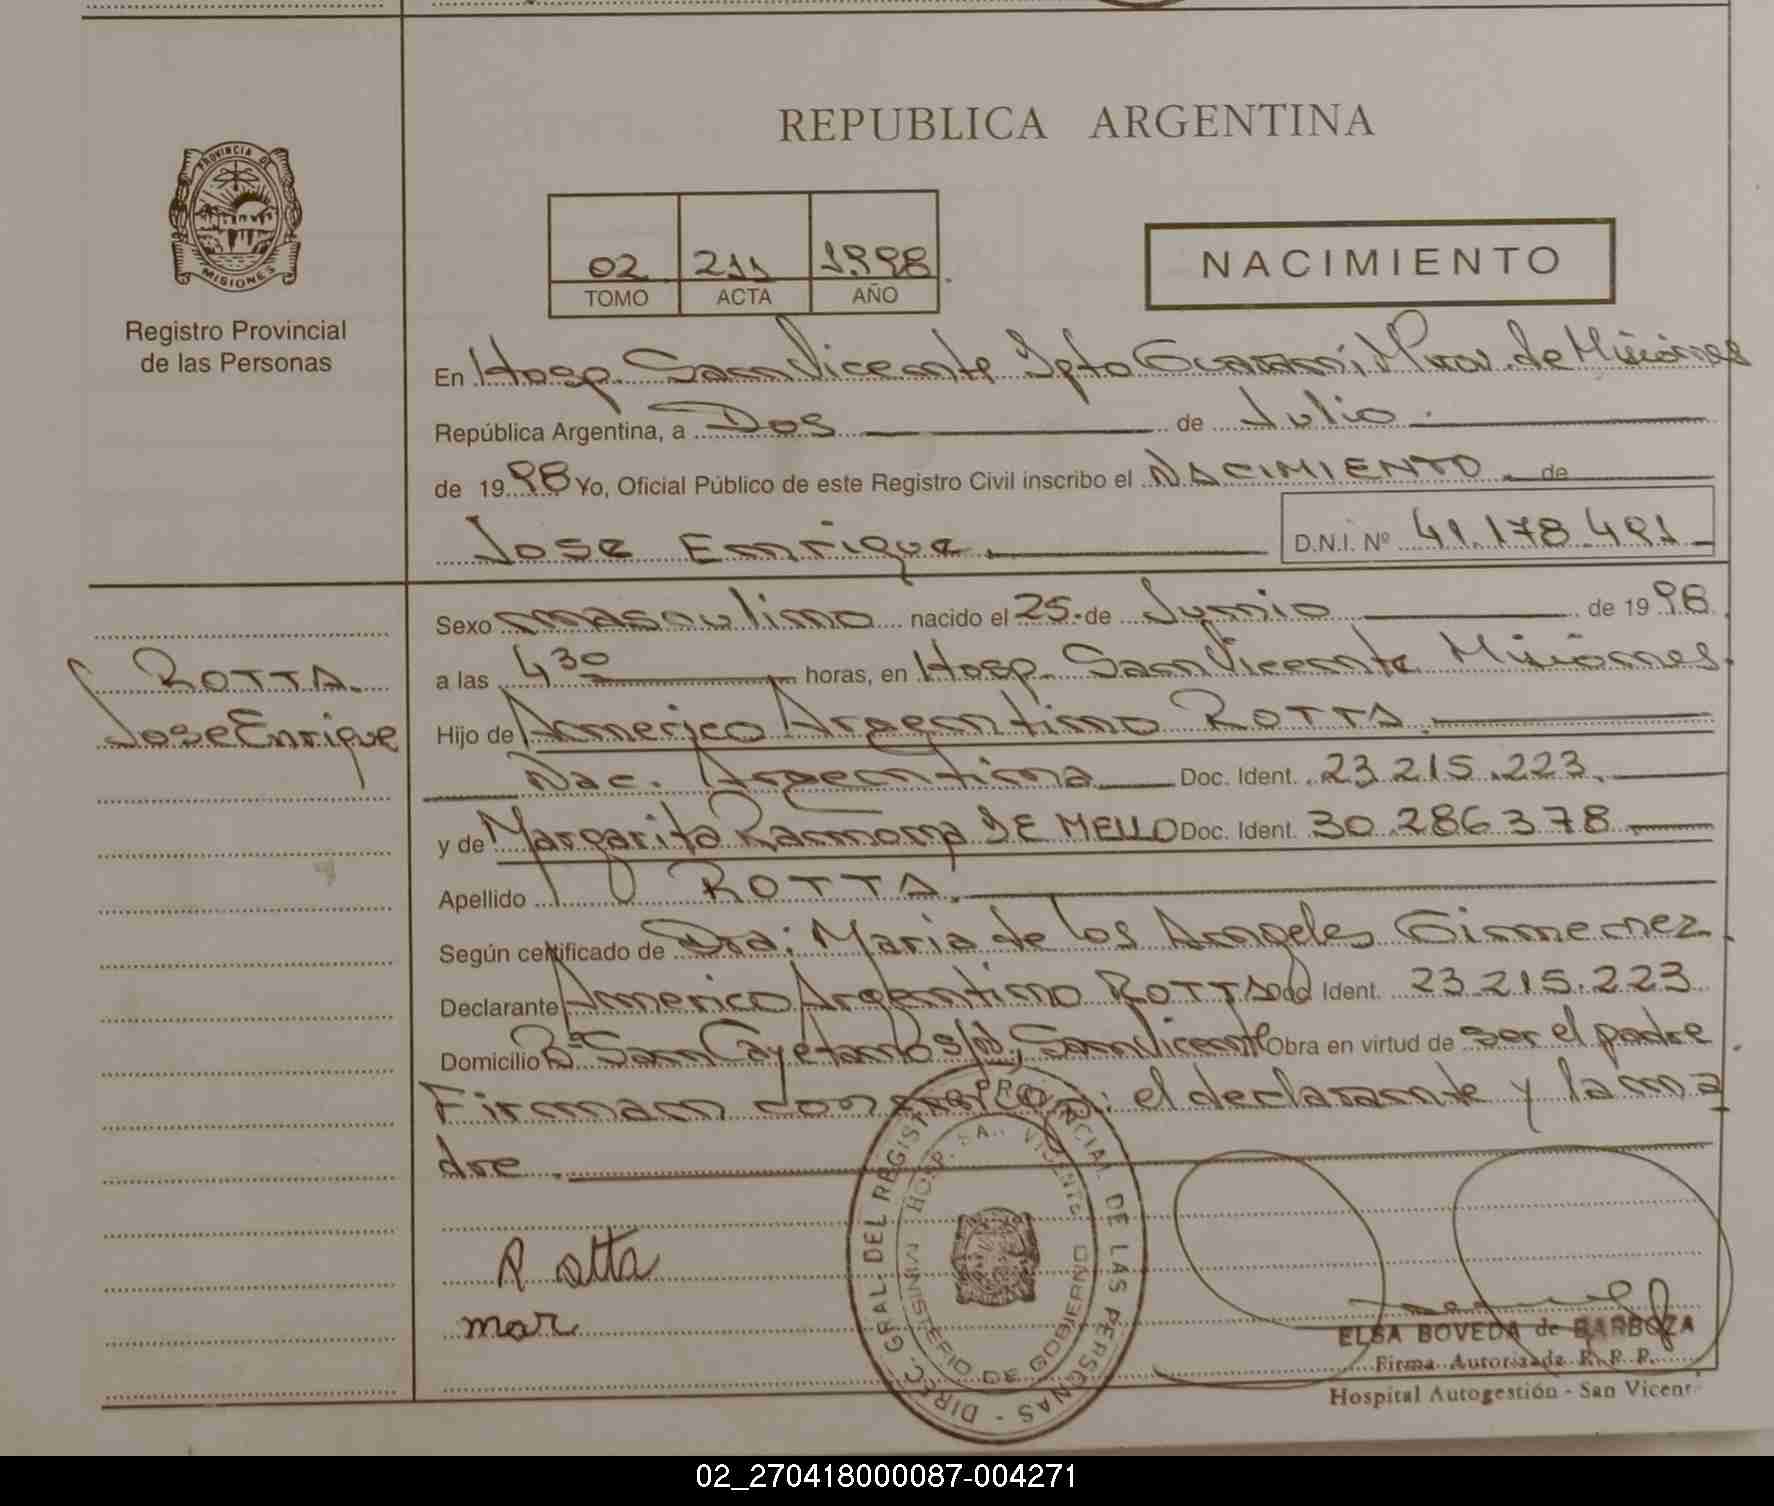 REPUBLICA ARGENTINA
PROVINCIA DE
MISIONES
Registro Provincial
de las Personas
02 211 1998
TOMO ACTA AÑO
NACIMIENTO
En Hosp. San Vicente Dpto Guaraní, Prov. de Misiones
República Argentina, a Dos de Julio
de 1998 Yo, Oficial Público de este Registro Civil inscribo el NACIMIENTO de
Jose Enrique D.N.I. Nº 41.178.491
Sexo masculino nacido el 25 de Junio de 1998
a las 4 30 horas, en Hosp. San Vicente Misiones.
ROTTA.
Jose Enrique
Hijo de Americo Argentino ROTTA
Nac. Argentina Doc. Ident. 23.215.223.
y de Margarita Ramona DE MELLO Doc. Ident. 30.286.378
Apellido ROTTA.
Según certificado de Dra: Maria de los Angeles Gimenez.
Declarante Americo Argentino ROTTA Doc. Ident. 23.215.223
Domicilio Bº San Cayetano s/n, San Vicente Obra en virtud de ser el padre.
Firman con : el declarante y la ma
dre.
Rotta
mar
DIREC. GRAL. DEL REGIST. PROVINCIAL DE LAS PERSONAS -
HOSP. SAN VICENTE
MINISTERIO DE GOBIERNO
ELSA BOVEDA de BARBOZA
Firma Autorizada R. P. P.
Hospital Autogestión - San Vicent
02_270418000087-004271